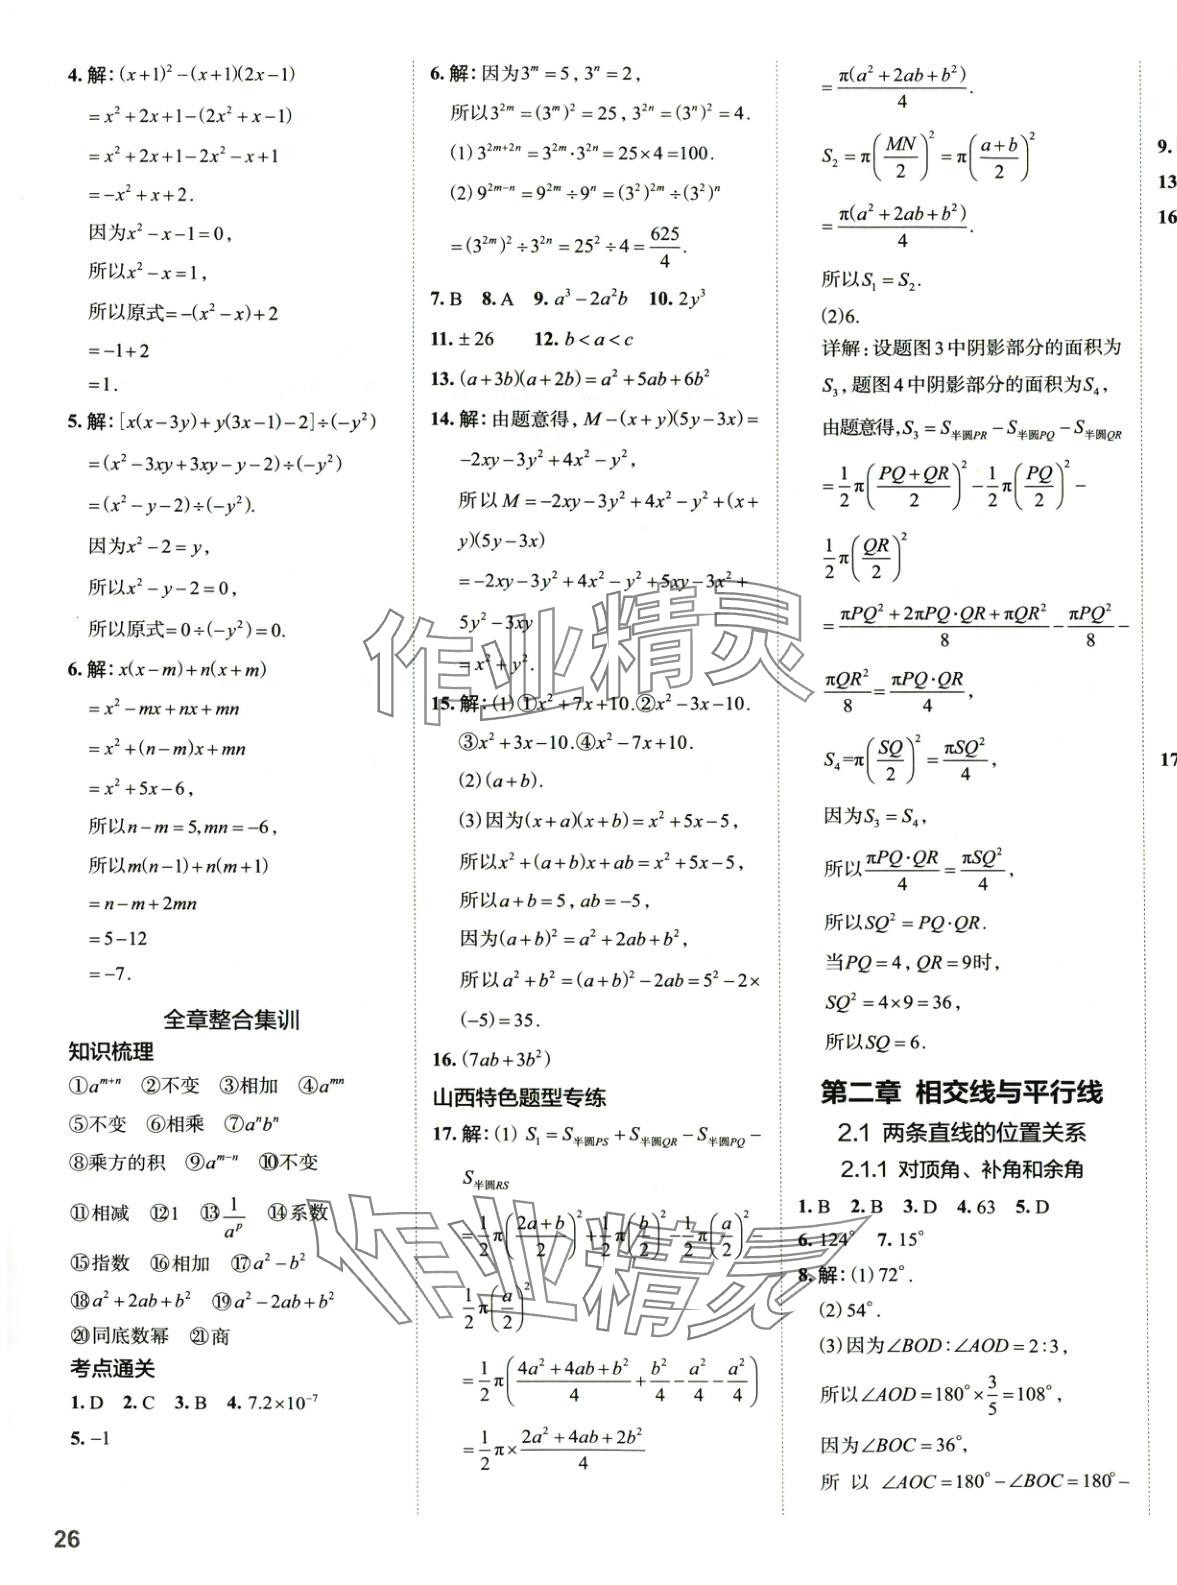 4. 解：(x+1)²−(x+1)(2x−1)
=x²+2x+1−(2x²+x−1)
=x²+2x+1−2x²−x+1
=−x²+x+2.
因为x²−x−1=0,
所以x²−x=1,
所以原式=−(x²−x)+2
=−1+2
=1.
5. 解：[x(x−3y)+y(3x−1)−2]÷(−y²)
=(x²−3xy+3xy−y−2)÷(−y²)
=(x²−y−2)÷(−y²).
因为x²−2=y,
所以x²−y−2=0,
所以原式=0÷(−y²)=0.
6. 解：x(x−m)+n(x+m)
=x²−mx+nx+mn
=x²+(n−m)x+mn
=x²+5x−6,
所以n−m=5,mn=−6,
所以m(n−1)+n(m+1)
=n−m+2mn
=5−12
=−7.
全章整合集训
知识梳理
①aᵐ⁺ⁿ ②不变 ③相加 ④aᵐⁿ
⑤不变 ⑥相乘 ⑦aⁿbⁿ
⑧乘方的积 ⑨aᵐ⁻ⁿ ⑩不变
⑪相减 ⑫1 ⑬1/aᵖ ⑭系数
⑮指数 ⑯相加 ⑰a²−b²
⑱a²+2ab+b² ⑲a²−2ab+b²
⑳同底数幂 ㉑商
考点通关
1. D 2. C 3. B 4. 7.2×10⁻⁷
5. −1
26
6. 解：因为3ᵐ=5,3ⁿ=2,
所以3²ᵐ=(3ᵐ)²=25,3²ⁿ=(3ⁿ)²=4.
(1)3²ᵐ⁺²ⁿ=3²ᵐ·3²ⁿ=25×4=100.
(2)9²ᵐ⁻ⁿ=9²ᵐ÷9ⁿ=(3²)²ᵐ÷(3²)ⁿ
=(3²ᵐ)²÷3²ⁿ=25²÷4=625/4.
7. B 8. A 9. a³−2a²b 10. 2y³
11. ±26 12. b<a<c
13. (a+3b)(a+2b)=a²+5ab+6b²
14. 解：由题意得，M−(x+y)(5y−3x)=
−2xy−3y²+4x²−y²,
所以M=−2xy−3y²+4x²−y²+(x+
y)(5y−3x)
=−2xy−3y²+4x²−y²+5xy−3x²+
5y²−3xy
=x²+y².
15. 解：(1)①x²+7x+10.②x²−3x−10.
③x²+3x−10.④x²−7x+10.
(2)(a+b).
(3)因为(x+a)(x+b)=x²+5x−5,
所以x²+(a+b)x+ab=x²+5x−5,
所以a+b=5,ab=−5,
因为(a+b)²=a²+2ab+b²,
所以a²+b²=(a+b)²−2ab=5²−2×
(−5)=35.
16. (7ab+3b²)
山西特色题型专练
17. 解：(1) S₁=S半圆PS+S半圆QR−S半圆PQ−
S半圆RS
=1/2π((2a+b)/2)²+1/2π(b/2)²−1/2π(a/2)²−
1/2π(a/2)²
=1/2π((4a²+4ab+b²)/4+b²/4−a²/4−a²/4)
=1/2π×(2a²+4ab+2b²)/4
=π(a²+2ab+b²)/4.
S₂=π(MN/2)²=π((a+b)/2)²
=π(a²+2ab+b²)/4.
所以S₁=S₂.
(2)6.
详解：设题图3中阴影部分的面积为
S₃,题图4中阴影部分的面积为S₄,
由题意得,S₃=S半圆PR−S半圆PQ−S半圆QR
=1/2π((PQ+QR)/2)²−1/2π(PQ/2)²−
1/2π(QR/2)²
=(πPQ²+2πPQ·QR+πQR²)/8−πPQ²/8−
πQR²/8=πPQ·QR/4,
S₄=π(SQ/2)²=πSQ²/4,
因为S₃=S₄,
所以πPQ·QR/4=πSQ²/4,
所以SQ²=PQ·QR.
当PQ=4,QR=9时,
SQ²=4×9=36,
所以SQ=6.
第二章 相交线与平行线
2.1 两条直线的位置关系
2.1.1 对顶角、补角和余角
1. B 2. B 3. D 4. 63 5. D
6. 124° 7. 15°
8. 解：(1)72°.
(2)54°.
(3)因为∠BOD:∠AOD=2:3,
所以∠AOD=180°×3/5=108°,
因为∠BOC=36°,
所以∠AOC=180°−∠BOC=180°−
9.
13
16
17
作业精灵
作业精灵